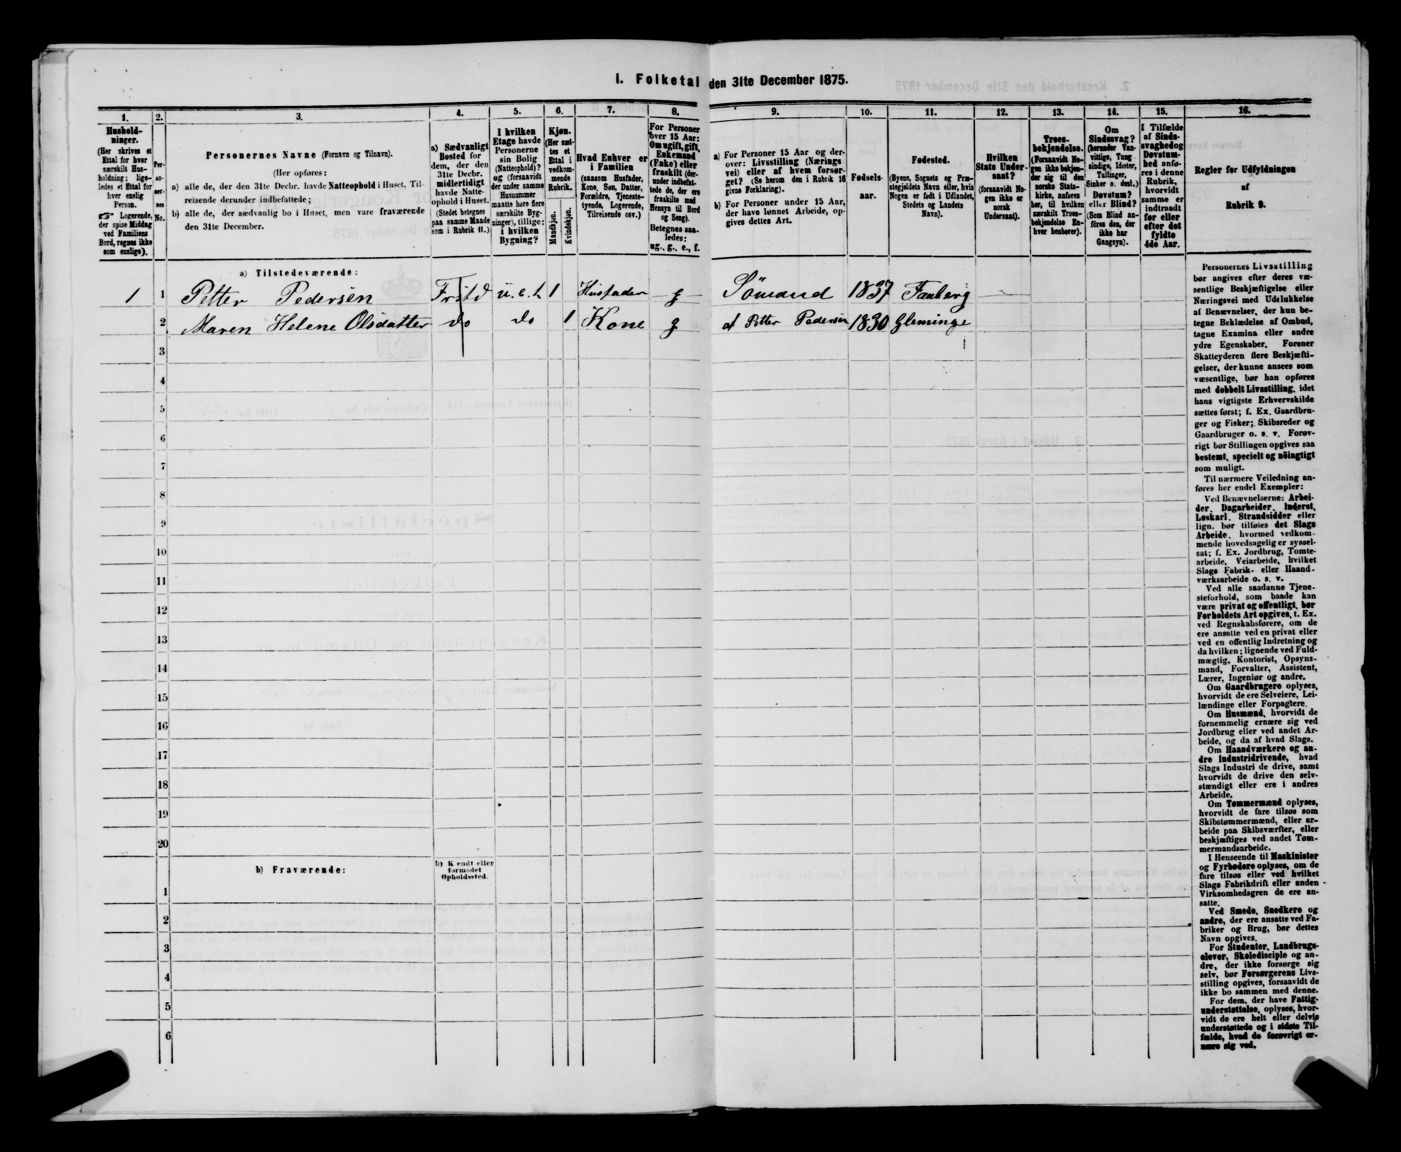 I. Folketal den 31te December 1875.
1. 2. 3. 4. 5. 6. 7. 8. 9. 10. 11. 12. 13. 14. 15. 16.
Hushold-
ninger.
(Her skrives et
Ettal for hver
særskilt Hus-
holdning; lige-
ledes et Ettal for
hver enslig
Person.
☞ Logerende,
der spise Middag
ved Familiens
Bord, regnes ikke
som enslige).
Per-
so-
ner-
nes
No.
Personernes Navne (Fornavn og Tilnavn).
(Her opføres:
a) alle de, der den 31te Decbr. havde Natteophold i Huset, Til-
reisende derunder indbefattede;
b) alle de, der sædvanlig bo i Huset, men vare fraværende
den 31te December.
a) Sædvanligt
Bosted for
dem, der den
31te Decbr.
midlertidigt
havde Natte-
ophold i Huset.
(Stedet betegnes
paa samme Maade
som i Rubrik 11.)
I hvilken
Etage havde
Personerne
sin Bolig
(Natteophold)?
og (forsaavidt
der under samme
Husnummer
maatte høre flere
særskilte Byg-
ninger), tillige:
i hvilken
Bygning?
Kjøn.
(Her sæt-
tes et
Ettal i
vedkom-
mende
Rubrik.)
Mandkjøn.
Kvindekjøn.
Hvad Enhver er
i Familien
(saasom Husfader,
Kone, Søn, Datter,
Forældre, Tjeneste-
tyende, Logerende,
Tilreisende osv.)
For Personer
over 15 Aar:
Om ugift, gift,
Enkemand
(Enke) eller
fraskilt (der-
under indbefat-
tede de, der ere
fraskilte med
Hensyn til Bord
og Seng).
Betegnes saa-
ledes:
ug., g., e., f.
a) For Personer 15 Aar og der-
over: Livsstilling (Nærings
vei) eller af hvem forsør-
get? (Se herom den i Rubrik 16
givne Forklaring).
b) For Personer under 15 Aar,
der have lønnet Arbeide, op-
gives dettes Art.
Fødsels-
aar.
Fødested.
(Byens, Sognets og Præ-
stegjeldets Navn eller, hvis
Nogen er født i Udlandet,
Stedets og Landets
Navn).
Hvilken
Stats Under-
saat?
(forsaavidt No-
gen ikke er
norsk
Undersaat).
Troes-
bekjendelse.
(Forsaavidt No-
gen ikke bekjen-
der sig til den
norske Stats-
kirke, anføres
her, til hvilken
særskilt Troes-
bekjendelse En-
hver henhører).
Om
Sindssvag?
(herunder Van-
vittige, Tung-
sindige, Idioter,
Tullinger,
Sinker o. desl.)
Døvstum?
eller Blind?
(Som Blind an-
føres den, der
ikke har
Gangsyn).
I Tilfælde
af Sinds-
svaghed og
Døvstum-
hed anfø-
res i denne
Rubrik,
hvorvidt
samme er
indtraadt
før eller
efter det
fyldte
4de Aar.
Regler for Udfyldningen
af
Rubrik 9.
a) Tilstedeværende:
1 1 Petter Pedersen Frstd u.e.t. 1 Husfader g Sömand 1837 Faaberg
2 Maren Helene Olsdatter do do 1 Kone g af Petter Pedersen 1830 Gleminge
3
4
5
6
7
8
9
10
11
12
13
14
15
16
17
18
19
20
b) Fraværende:
b) Kjendt eller
formodet
Opholdssted.
1
2
3
4
5
6
Personernes Livsstilling
bør angives efter deres væ-
sentlige Beskjæftigelse eller
Næringsvei med Udelukkelse
af Benævnelser, der kun be-
tegne Beklædelse af Ombud,
tagne Examina eller andre
ydre Egenskaber. Forener
Skatteyderen flere Beskjæfti-
gelser, der kunne ansees som
væsentlige, bør han opføres
med dobbelt Livsstilling, idet
hans vigtigste Erhvervskilde
sættes først; f. Ex. Gaardbru-
ger og Fisker; Skibsreder og
Gaardbruger o. s. v. Forøv-
rigt bør Stillingen opgives saa
bestemt, specielt og nöiagtigt
som muligt.
Til nærmere Veiledning an-
føres her endel Exempler:
Ved Benævnelserne: Arbei-
der, Dagarbeider, Inderst,
Løskarl, Strandsidder eller
lign. bør tilføies det Slags
Arbeide, hvormed vedkom-
mende hovedsagelig er syssel-
sat; f. Ex. Jordbrug, Tomte-
arbeide, Veiarbeide, hvilket
Slags Fabrik- eller Haand-
værksarbeide o. s. v.
Ved alle saadanne Tjene-
steforhold, som baade kan
være privat og offentligt, bør
Forholdets Art opgives, t. Ex.
ved Regnskabsførere, om de
ere ansatte ved en privat eller
ved en offentlig Indretning og
da hvilken; lignende ved Fuld-
mægtig, Kontorist, Opsyns-
mand, Forvalter, Assistent,
Lærer, Ingeniør og andre.
Om Gaardbrugere oplyses,
hvorvidt de ere Selveiere, Lei-
lændinge eller Forpagtere.
Om Husmænd, hvorvidt de
fornemmelig ernære sig ved
Jordbrug eller ved andet Ar-
beide, og da af hvad Slags.
Om Haandværkere og an-
dre Industridrivende, hvad
Slags Industri de drive, samt
hvorvidt de drive den selv-
stændigt eller ere i andres
Arbeide.
Om Tømmermænd oplyses,
hvorvidt de fare tilsøs som
Skibstømmermænd, eller ar-
beide paa Skibsværfter, eller
beskjæftiges ved andet Tøm-
mermandsarbeide.
I Henseende til Maskinister
og Fyrbødere oplyses, om de
fare tilsøs eller ved hvilket
Slags Fabrikdrift eller anden
Virksomhedsgren de ere an-
satte.
Ved Smede, Snedkere og
andre, der ere ansatte ved Fa-
briker og Brug, bør dettes
Navn opgives.
For Studenter, Landbrugs-
elever, Skoledisciple og an-
dre, der ikke forsørge sig
selv, bør Forsørgerens Livs-
stilling opgives, forsaavidt de
ikke bo sammen med denne.
For dem, der have Fattig-
understøttelse, oplyses, hvor-
vidt de ere helt eller delvis
understøttede og i sidste Til-
fælde, hvad de forøvrigt er-
nære sig ved.